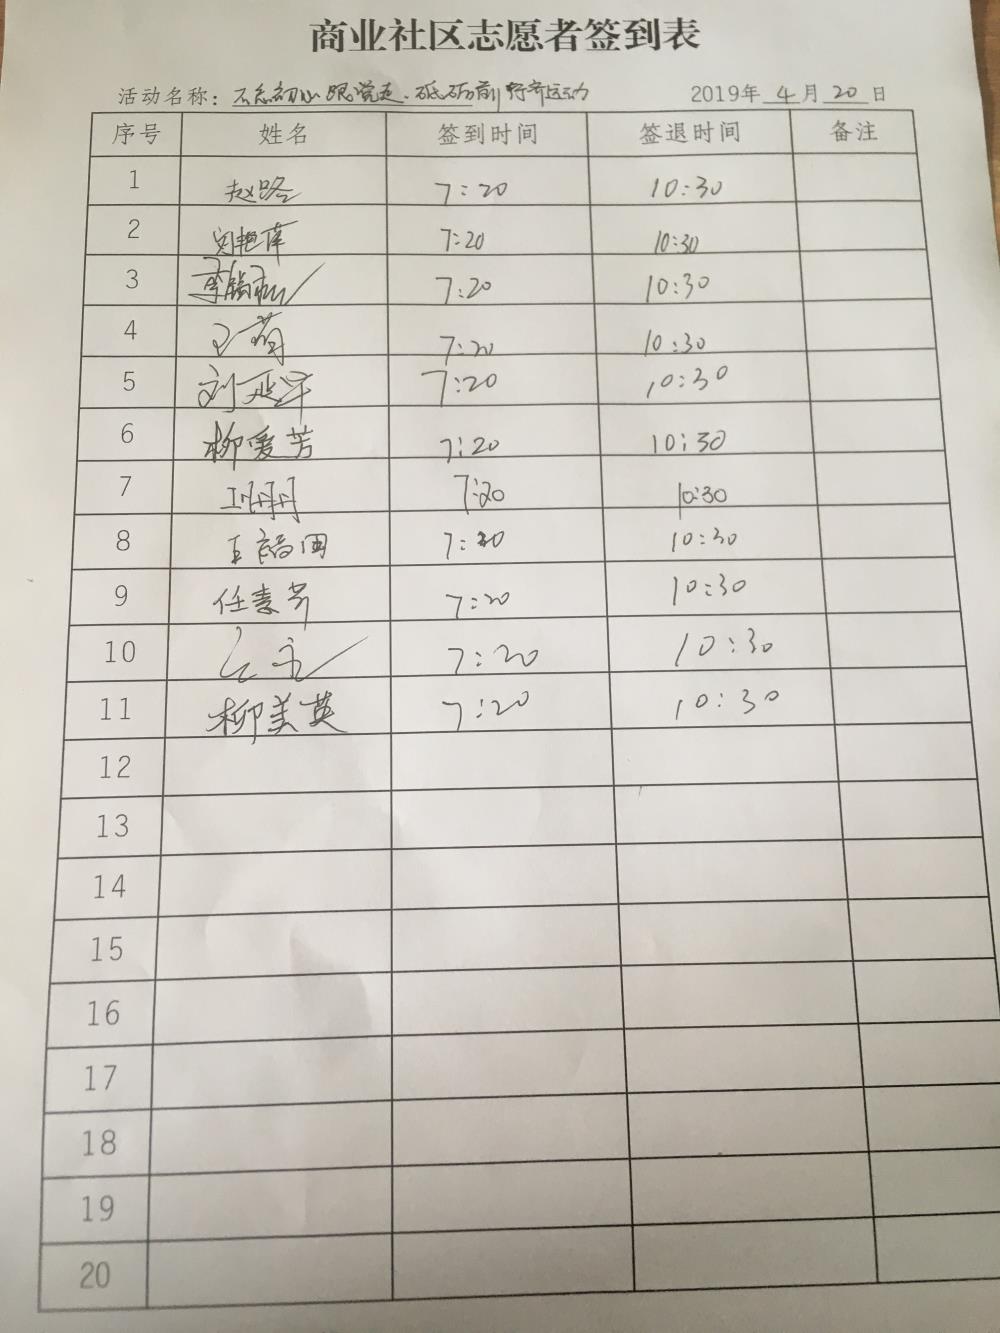 商业社区志愿者签到表
活动名称：不忘初心跟党走、砥砺前行齐运动 2019年 4 月 20 日
序号 姓名 签到时间 签退时间 备注
1 赵路 7:20 10:30
2 7:20 10:30
3 7:20 10:30
4 王菊 7:20 10:30
5 刘 7:20 10:30
6 柳爱芳 7:20 10:30
7 王丹丹 7:20 10:30
8 王福田 7:20 10:30
9 任素芳 7:20 10:30
10 7:20 10:30
11 柳美英 7:20 10:30
12
13
14
15
16
17
18
19
20